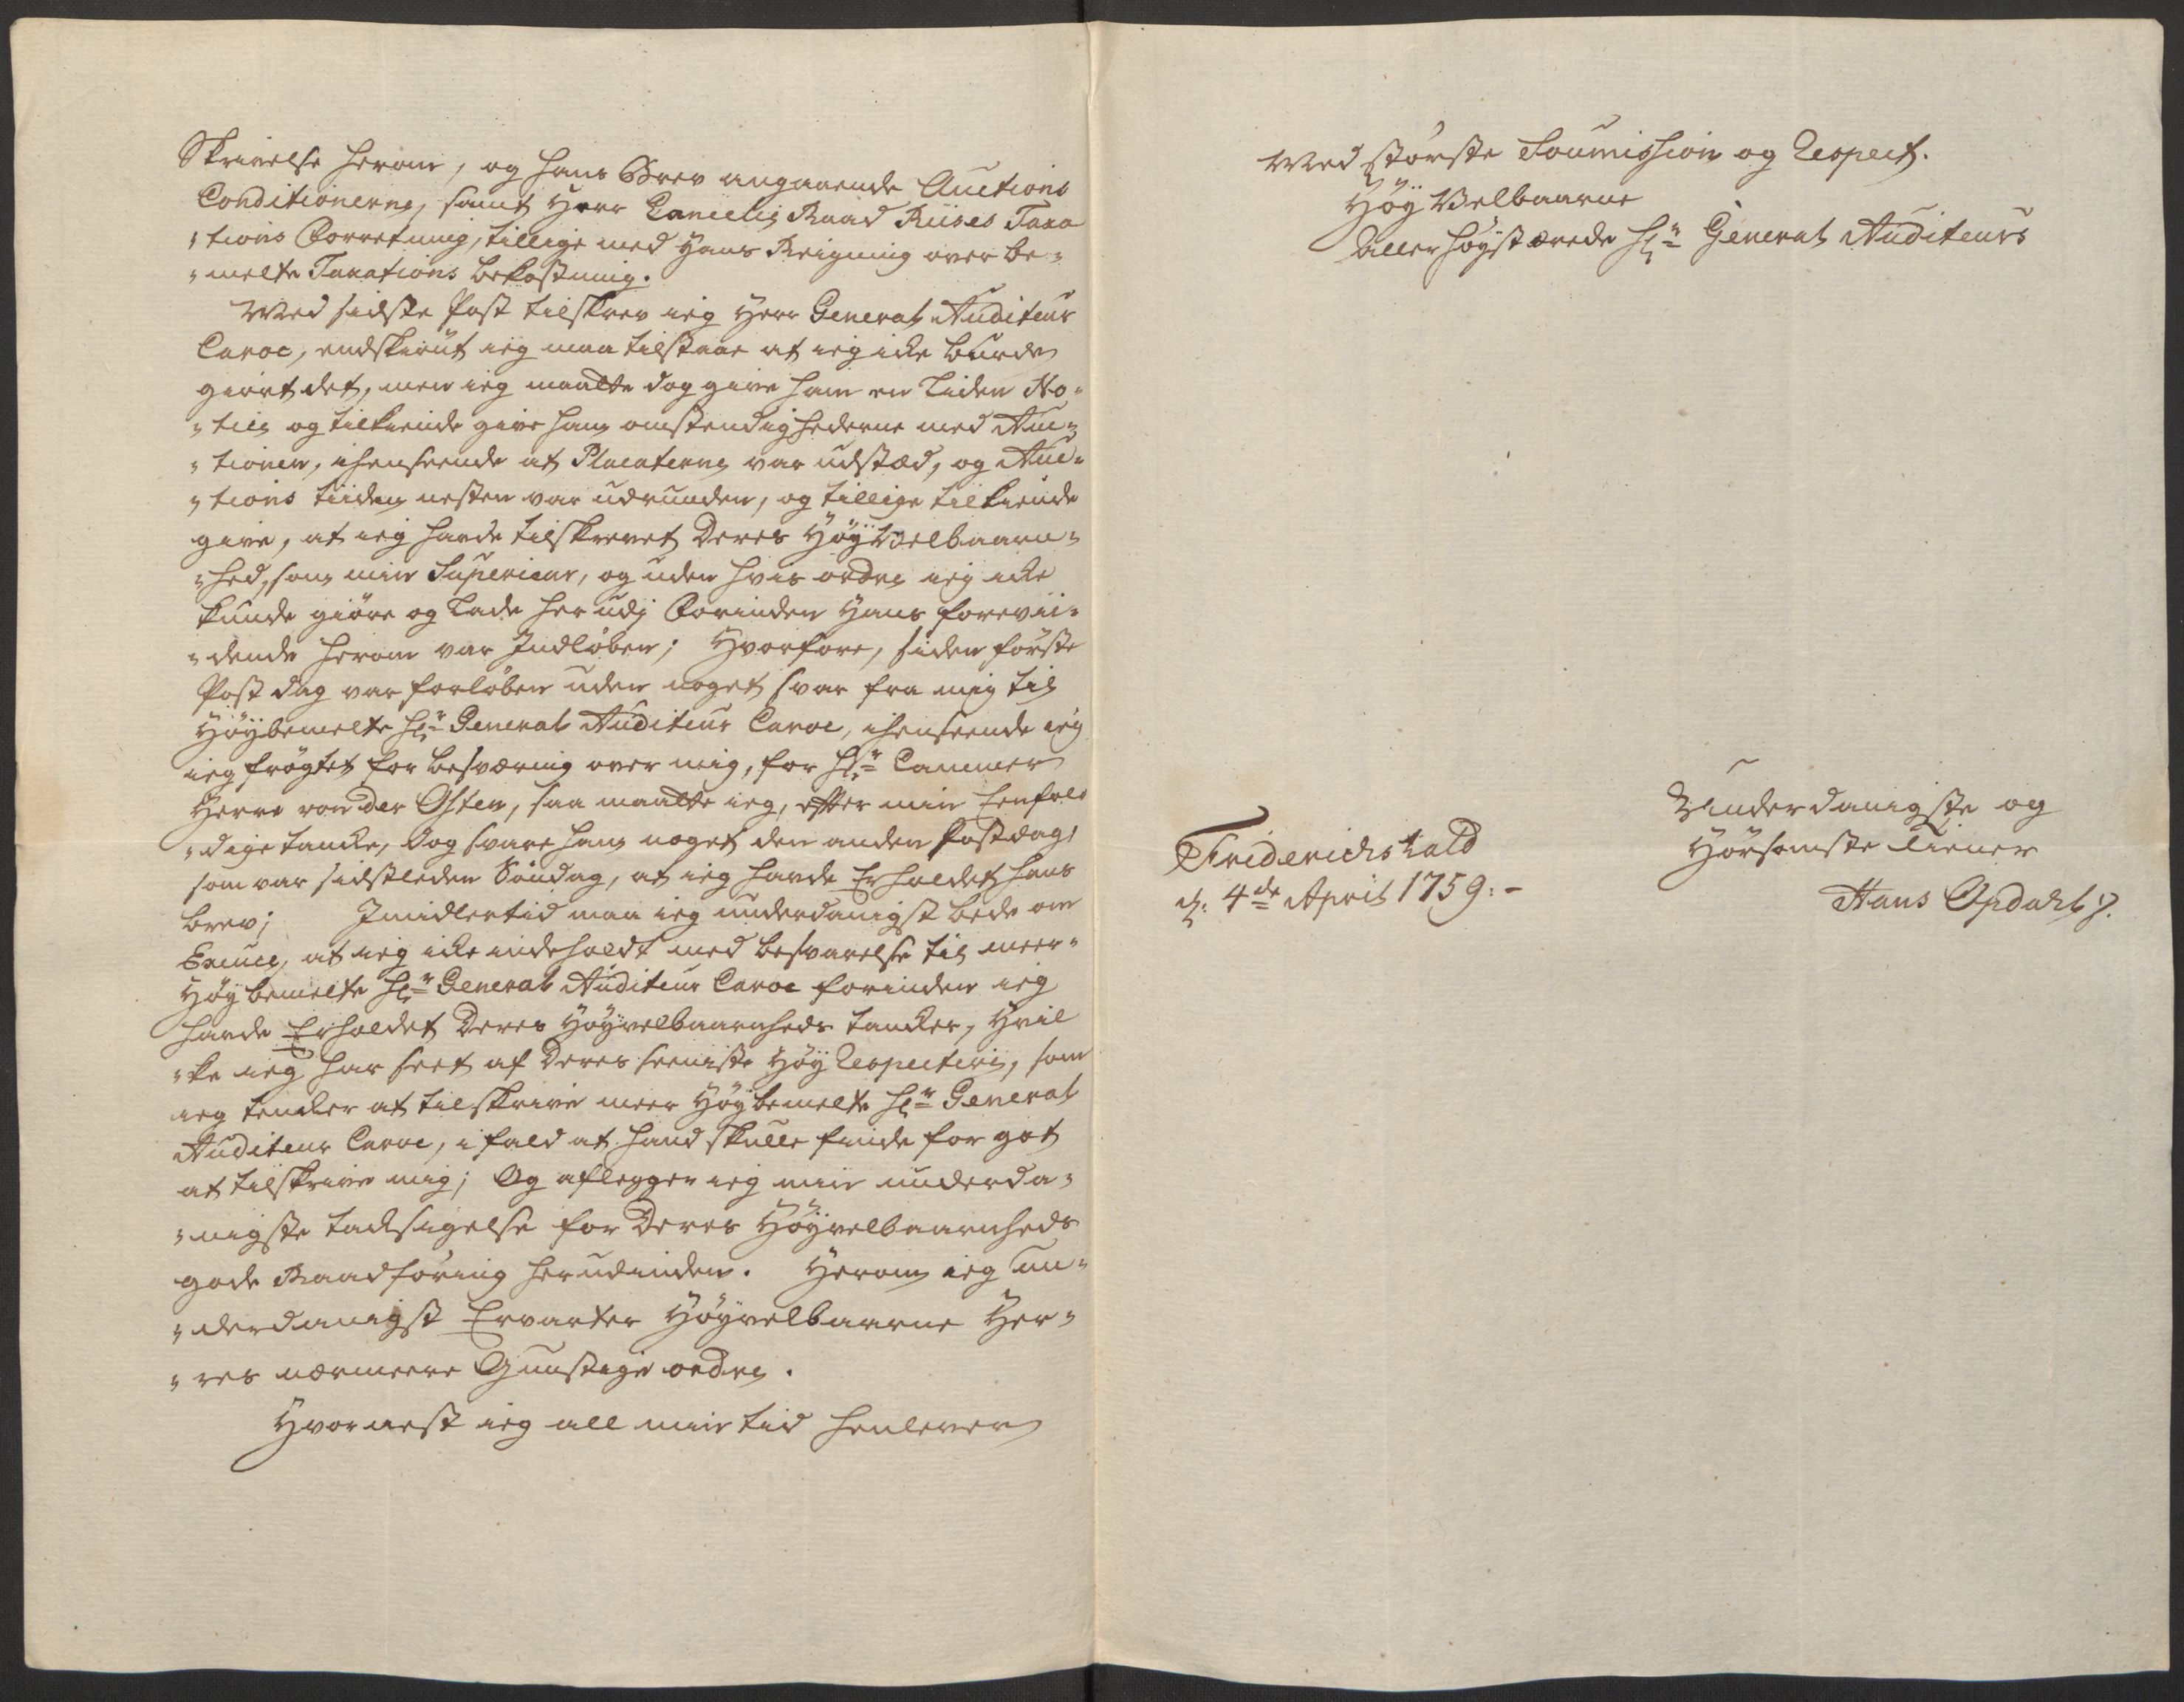 Skrivelse herom, og hans Brev angaaende Auctions
Conditionerne, samt Herr Cancelie Raad Riises Taxa
"tions Forretning, tillige med Hans Reigning over be-
"melte Taxations bekostning.
Med sidste Post tilskrev ieg Herr General Auditeur
Caroc, endskiönt ieg maa tilstaae at ieg icke burde
giört det, men ieg maatte dog give ham en Liden No-
"tice og tilkiende give ham omstendighederne med Auc-
"tionen, i henseende at Placaterne var udstæd, og Auc-
"tions tiiden nesten var udrunden, og tillige tilkiende
give, at ieg havde tilskrevet Deres HöyVelbaarn-
"hed, som min Superieur, og uden hvis ordre ieg icke
kunde giöre og Lade her udj Forinden Hans forevii-
"dende herom var Indlöben; Hvorfore, siden förste
Post dag var forlöben uden noget svar fra mig til
Höÿbemelte Hr. General Auditeur Caroc, i henseende ieg
ieg frögtet for besværing over mig, for Hr. Cammer
Herre von der Osten, saa maatte ieg, efter min Eenfol
"dige tancke, Dog svare ham noget den anden Postdag,
som var sidstleden Söndag, at ieg havde Erholdet hans
brev; Imidlertid maa ieg underdanigst bede om
Excuce, at ieg icke indeholdt med besvarelse til meer-
Höÿbemelte Hr. General Auditeur Caroc forinden ieg
havde Erholdet Deres Höÿvelbaarnheds tancker, Hvil
"ke ieg har seet af Deres seeniste Höÿ Respective, som
ieg tencker at tilskrive meer Höÿbemelte Hr. General
Auditeur Caroc, i fald at hand skulle finde for got
at tilskrive mig; Og aflegger ieg min underda-
"nigste tacksigelse for Deres Höÿvelbaarnheds
gode Raadföring herudinden. Herom ieg un-
"derdanigst Ervarter Höÿvelbaarne Her-
"res nærmeere Gunstige ordre.
Hvornest ieg all min tid henlever
Med störste Soumission og Respect.
Höÿ Velbaarne
Aller höÿstærede Hr. General Auditeurs
Underdanigste og
Hörsomste tiener
Friderichshald
d. 4de April 1759:-
Hans Opdahl